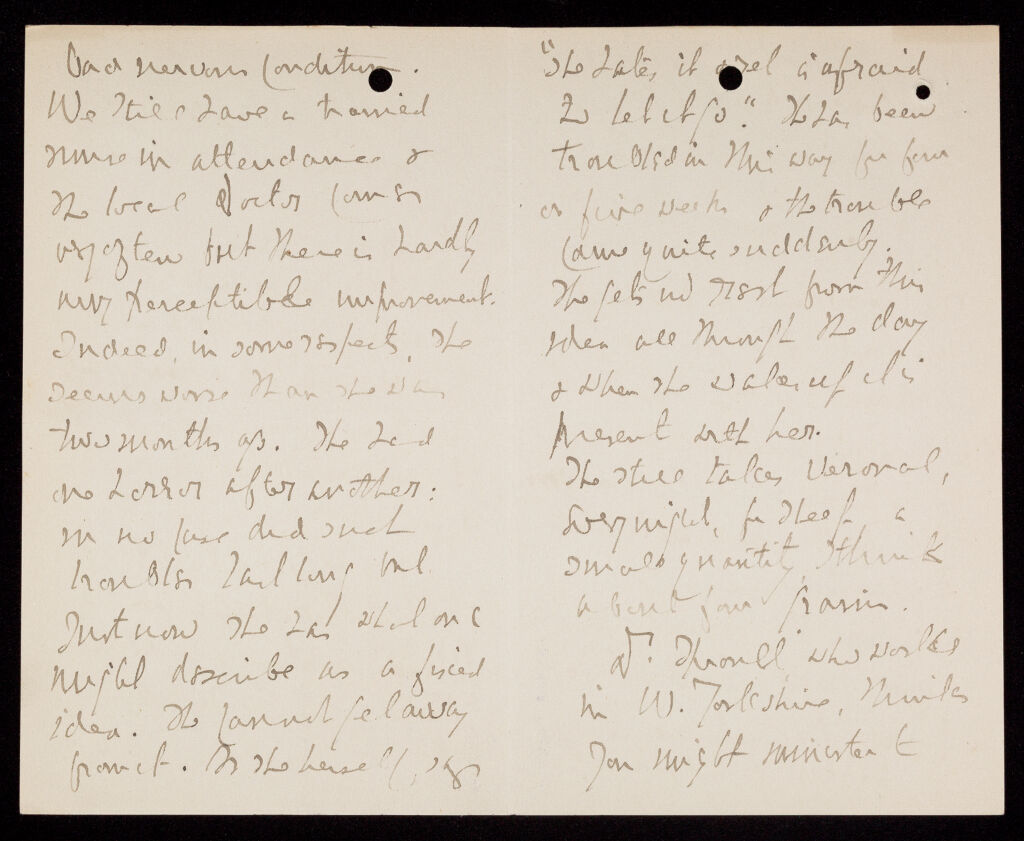 bad nervous condition.
We still have a trained
nurse in attendance &
the local Doctor comes
very often but there is hardly
any perceptible improvement.
Indeed, in some respects, she
seems worse than she was
two months ago. She had
one horror after another:
in no case did such
troubles last long but
Just now she has what one
might describe as a fixed
idea. She cannot get away
from it. As she herself says
"she hates it & yet is afraid
to let it go". She has been
troubled in this way for four
or five weeks & the trouble
came quite suddenly.
She gets no rest from this
idea all through the day
& when she wakes up it is
present with her.
She still takes Veronal,
every night, for sleep, a
small quantity, I think
about four grains.
Dr. who works
in W. Yorkshire, thinks
you might